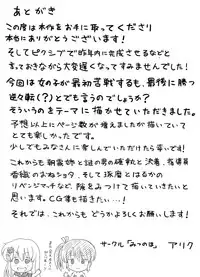 あとがき
この度は本作をお手に取ってくださり
本当にありがとうございます!
そしてピクシブで昨年内に完成させるなどと
言っておきながら大変遅くなってすみませんでした!
今回は女の子が最初苦戦するも、最後に勝つ
逆転(?)とでも言うのでしょうか?
そういうのをテーマに描かせていただきました。
予想以上にページ数が増えましたが描いていて
とても楽しかったです。
少しでもみなさんに奮んでいただけたら幸いです!
これからも朝霧姉と謎の男の確執と決着、指導員
香織のまねショタ、そして琢磨とはるかの
リベンジマチなど、隙をみつけて描いていきたいと
思います。CG集も描きたい・・・!
それでは、これからもどうかよろしくお願いします!
サークル「みつのは」 アリク